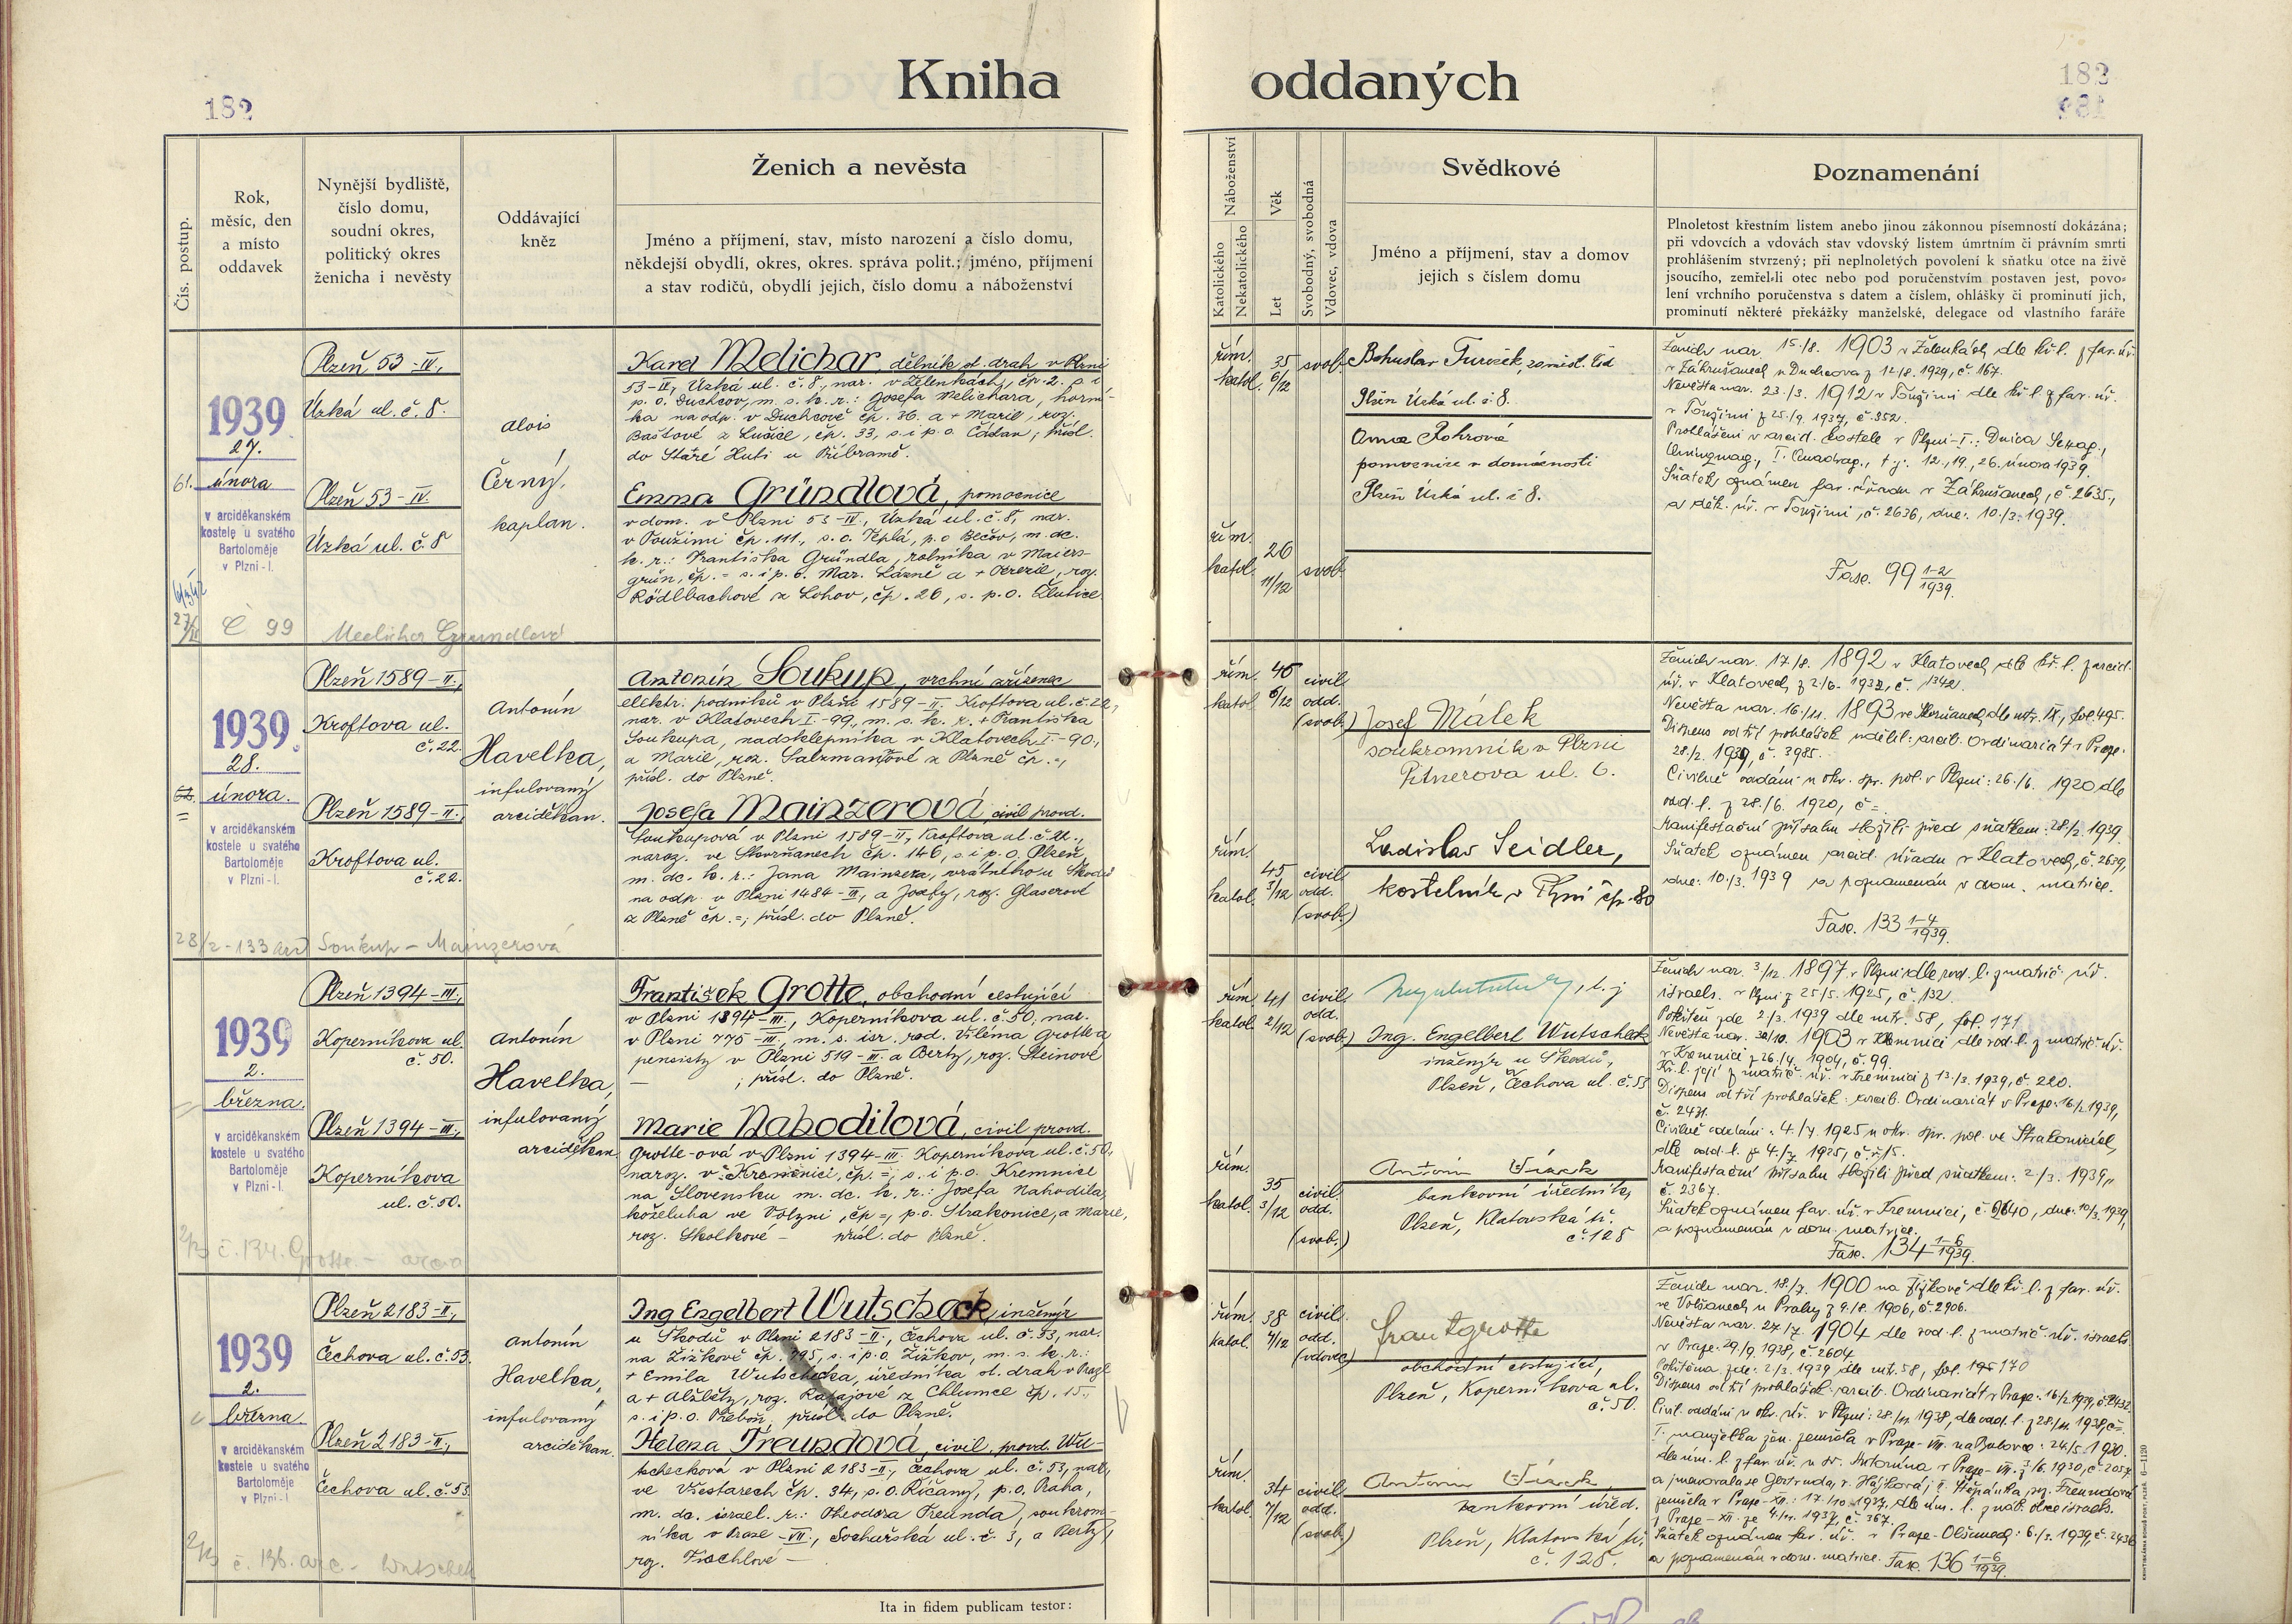 Kniha oddaných
182
182
Čís. postup.
Rok,
měsíc, den
a místo
oddavek
Nynější bydliště,
číslo domu,
soudní okres,
politický okres
ženicha i nevěsty
Oddávající
kněz
Ženich a nevěsta
Jméno a příjmení, stav, místo narození a číslo domu,
někdejší obydlí, okres, okres. správa polit.; jméno, příjmení
a stav rodičů, obydlí jejich, číslo domu a náboženství
Náboženství
Katolického
Nekatolického
Věk
Let
Svobodný, svobodná
Vdovec, vdova
Svědkové
Jméno a příjmení, stav a domov
jejich s číslem domu
Poznamenání
Plnoletost křestním listem anebo jinou zákonnou písemností dokázána;
při vdovcích a vdovách stav vdovský listem úmrtním či právním smrti
prohlášením stvrzený; při neplnoletých povolení k sňatku otce na živě
jsoucího, zemřel-li otec nebo pod poručenstvím postaven jest, povo-
lení vrchního poručenstva s datem a číslem, ohlášky či prominutí jich,
prominutí některé překážky manželské, delegace od vlastního faráře
61.
1939
27.
února
v arciděkanském
kostele u svatého
Bartoloměje
v Plzni-I.
Č 99
Plzeň 53-IV.,
Úzká ul. č. 8.
Plzeň 53-IV.
Úzká ul. č. 8
Alois
Černý,
kaplan.
Karel Melichar, dělník st. drah v Plzni
53-IV., Úzká ul. č. 8., nar. v Želenkách, čp. 2. s. i
p. o. Duchcov, m. s. k. r.: Josefa Melichara, horní-
ka na odp. v Duchcově čp. 36. a + Marie, roz.
Baštové z Lušice, čp. 33, s. i p. o. Čádan; přísl.
do Staré Huti u Příbramě.
Emma Gründlová, pomocnice
v dom. v Plzni 53-IV., Úzká ul. č. 8, nar.
v Toužimi čp. 111., s. o. Teplá, p. o Bečov, m. dc.
k. r.: Františka Gründla, rolníka v Maiers-
grün, čp. = s. i p. o. Mar. Lázně a + Terezie, roz.
Rödlbachové z Lohov, čp. 26, s. p. o. Žlutice
řím.
katol.
35
6/12
svob.
řím.
katol.
26
11/12
svob.
Bohuslav Tureček, zaměst. čsd
Plzeň Úzká ul. č 8.
Anna Rohrová
pomocnice v domácnosti
Plzeň Úzká ul. č 8.
Ženich nar. 15./8. 1903 v Želenkách dle kř. l. z far. úř.
v Záhrušanech u Duchcova z 12./8. 1929, č. 167.
Nevěsta nar. 23./3. 1912 v Toužimi dle kř. l. z far. úř.
v Toužimi z 25./9. 1937, č. 352.
Prohlášeni v arcid. kostele v Plzni-I.: Dnica Sexag.,
Quinquag., I. Quadrag., t. j. 12., 19., 26. února 1939.
Sňatek oznámen far. úřadu v Záhrušanech, č. 2635.,
a děk. úř. v Toužimi, č. 2636, dne: 10./3. 1939.
Fasc. 99 1-2/1939.
1939.
28.
února.
v arciděkanském
kostele u svatého
Bartoloměje
v Plzni-I.
28/2 - 133 Soukup - Mainzerová
Plzeň 1589-II.,
Kroftova ul.
č. 22.
Plzeň 1589-II.,
Kroftova ul.
č. 22.
Antonín
Havelka,
infulovaný
arciděkan.
Antonín Soukup, vrchní zřízenec
elektr. podniků v Plzni 1589-II. Kroftova ul. č. 22.,
nar. v Klatovech I-99., m. s. k. r. + Františka
Soukupa, nadsklepníka v Klatovech I-90.,
a Marie, roz. Salzmannové z Plzně čp. =,
přísl. do Plzně.
Josefa Mainzerová civil. provd.
Soukupová v Plzni 1589-II, Kroftova ul. č. 22.,
naroz. ve Skvrňanech čp. 146, s. i p. o. Plzeň,
m. dc. k. r.: Jana Mainzera, vrátného u Škodů
na odp. v Plzni 1484-III, a Josefy, roz. Glaserové
z Plzně čp. =; přísl. do Plzně.
řím.
katol.
46
6/12
civil.
odd.
(svob.)
řím.
katol.
45
3/12
civil.
odd.
(svob.)
Josef Málek
soukromník v Plzni
Pitnerova ul. 6.
Ladislav Seidler,
kostelník v Plzni čp. 80
Ženich nar. 17./8. 1892 v Klatovech dle kř. l. z arcid.
úř. v Klatovech z 2./6. 1932, č. 1342.
Nevěsta nar. 16./11. 1893 ve Skvrňanech, dle mtr. IX., fol. 495.
Dispens od tří prohlášek udělil: arcib. Ordinariát v Praze:
28./2. 1939, č. 3985.
Civilně oddáni u okr. spr. pol. v Plzni: 26./6. 1920 dle
odd. l. z 28./6. 1920, č =.
Manifestační přísahu složili před sňatkem: 28./2. 1939.
Sňatek oznámen arcid. úřadu v Klatovech, č. 2639,
dne: 10./3. 1939 a poznamenán v dom. matrice.
Fasc. 133 1-4/1939.
1939
2.
března.
v arciděkanském
kostele u svatého
Bartoloměje
v Plzni-I.
2/3 č. 134. Grotte.-
Plzeň 1394-III.,
Koperníkova ul.
č. 50.
Plzeň 1394-III.,
Koperníkova
ul. č. 50.
Antonín
Havelka,
infulovaný
arciděkan
František Grotte, obchodní cestující
v Plzni 1394-III., Koperníkova ul. č. 50, nar.
v Plzni 775-III., m. s. isr. rod. Viléma Grotte a
pensisty v Plzni 519-III. a Berty, roz. Steinové
— ; přísl. do Plzně.
Marie Nahodilová, civil provd.
Grotte-ová v Plzni 1394-III. Koperníkova ul. č. 50,
naroz. v Kremnici, čp. =, s. i p. o. Kremnice
na Slovensku m. dc. k. r.: Josefa Nahodila,
koželuha ve Volyni, čp =, p. o. Strakonice, a Marie,
roz. Skolkové — přísl. do Plzně.
řím.
katol.
41
2/12
civil.
odd.
(svob.)
řím.
katol.
35
3/12
civil.
odd.
(svob.)
Ing. Engelbert Wutscheck
inženýr u Škodů,
Plzeň, Čechova ul. č. 53
Antonín
bankovní úředník,
Plzeň, Klatovská tř.
č. 128
Ženich nar. 3./12. 1897 v Plzni dle rod. l. z matrič. úř.
israels. v Plzni z 25./5. 1925, č. 132.
Pokřtěn zde 2./3. 1939 dle mtr. 58, fol. 171
Nevěsta nar. 30/10. 1903 v Kremnici dle rod. l. z matrič. úř.
v Kremnici z 26./4. 1904, č. 99.
Kř. l. její z matrič. úř. v Kremnici z 13./3. 1939, č. 220.
Dispens od tří prohlášek: arcib. Ordinariát v Praze: 16/2. 1939,
č. 2431.
Civilně oddáni: 4./7. 1925 u okr. spr. pol. ve Strakonicích,
dle odd. l. z 4./7. 1925, č. 15.
Manifestační přísahu složili před sňatkem: 2./3. 1939,
č. 2367.
Sňatek oznámen far. úř. v Kremnici, č. 2640, dne: 10/3. 1939,
a poznamenán v dom. matrice.
Fasc. 134 1-6/1939.
1939
2.
března
v arciděkanském
kostele u svatého
Bartoloměje
v Plzni-I.
2/3 č. 136. arc - Wutschek
Plzeň 2183-II.,
Čechova ul. č. 53.
Plzeň 2183-II.,
Čechova ul. č. 53.
Antonín
Havelka,
infulovaný
arciděkan.
Ing Engelbert Wutscheck, inženýr
u Škodů v Plzni 2183-II., Čechova ul. č. 53, nar.
na Žižkově čp. 795, s. i p. o. Žižkov, m. s. k. r.:
+ Emila Wutschecka, úředníka st. drah v Praze
a + Alžběty, roz. Ratajové z Chlumce čp. 15.,
s. i p. o. Třeboň, přísl. do Plzně.
Helena Freundová, civil. provd. Wu-
tschecková v Plzni 2183-II., Čechova ul. č. 53, nar.
ve Všestarech čp. 34, s. o. Říčany, p. o. Praha,
m. dc. israel. r.: Theodora Freunda, soukrom-
níka v Praze-VII., Sochařská ul. č. 3, a Berty,
roz. —
řím.
katol.
38
7/12
civil.
odd.
(vdovec)
řím.
katol.
34
7/12
civil.
odd.
(svob.)
Frant Grotte
obchodní cestující,
Plzeň, Koperníkova ul.
č. 50.
Antonín
bankovní úřed.
Plzeň, Klatovská tř.
č. 128.
Ženich nar. 18./7. 1900 na Žižkově dle kř. l. z far. úř.
ve Volšanech u Prahy z 9./8. 1906, č. 2906.
Nevěsta nar. 27/7. 1904 dle rod. l. z matrič. úř. israels.
v Praze: 29/9. 1938, č. 2604
Pokřtěna zde: 2/3. 1939 dle mt. 58, fol. 170
Dispens od tří prohlášek: arcib. Ordinariát v Praze: 16/2. 1939, č. 2432.
Civil. oddáni u okr. úř. v Plzni: 28/11. 1938, dle odd. l. z 28/11. 1938, č =
I. manželka žen. zemřela v Praze-VII. na Bulovce: 24/5. 1930.
dle úm. l. z far. úř. u sv. Antonína v Praze-VII. z 3/6. 1930, č. 2057
a jmenovala se Gertruda, r. Hájková; II. Štěpánka, roz. Freundová
zemřela v Praze-XII.: 17./10. 1937, dle úm. l. z náb. obce israels.
v Praze-XII. ze 4./11. 1937, č. 367.
Sňatek oznámen far. úř. v Praze-Olšanech: 6./3. 1939, č. 2436
a poznamenán v dom. matrice. Fasc. 136 1-6/1939.
Ita in fidem publicam testor: